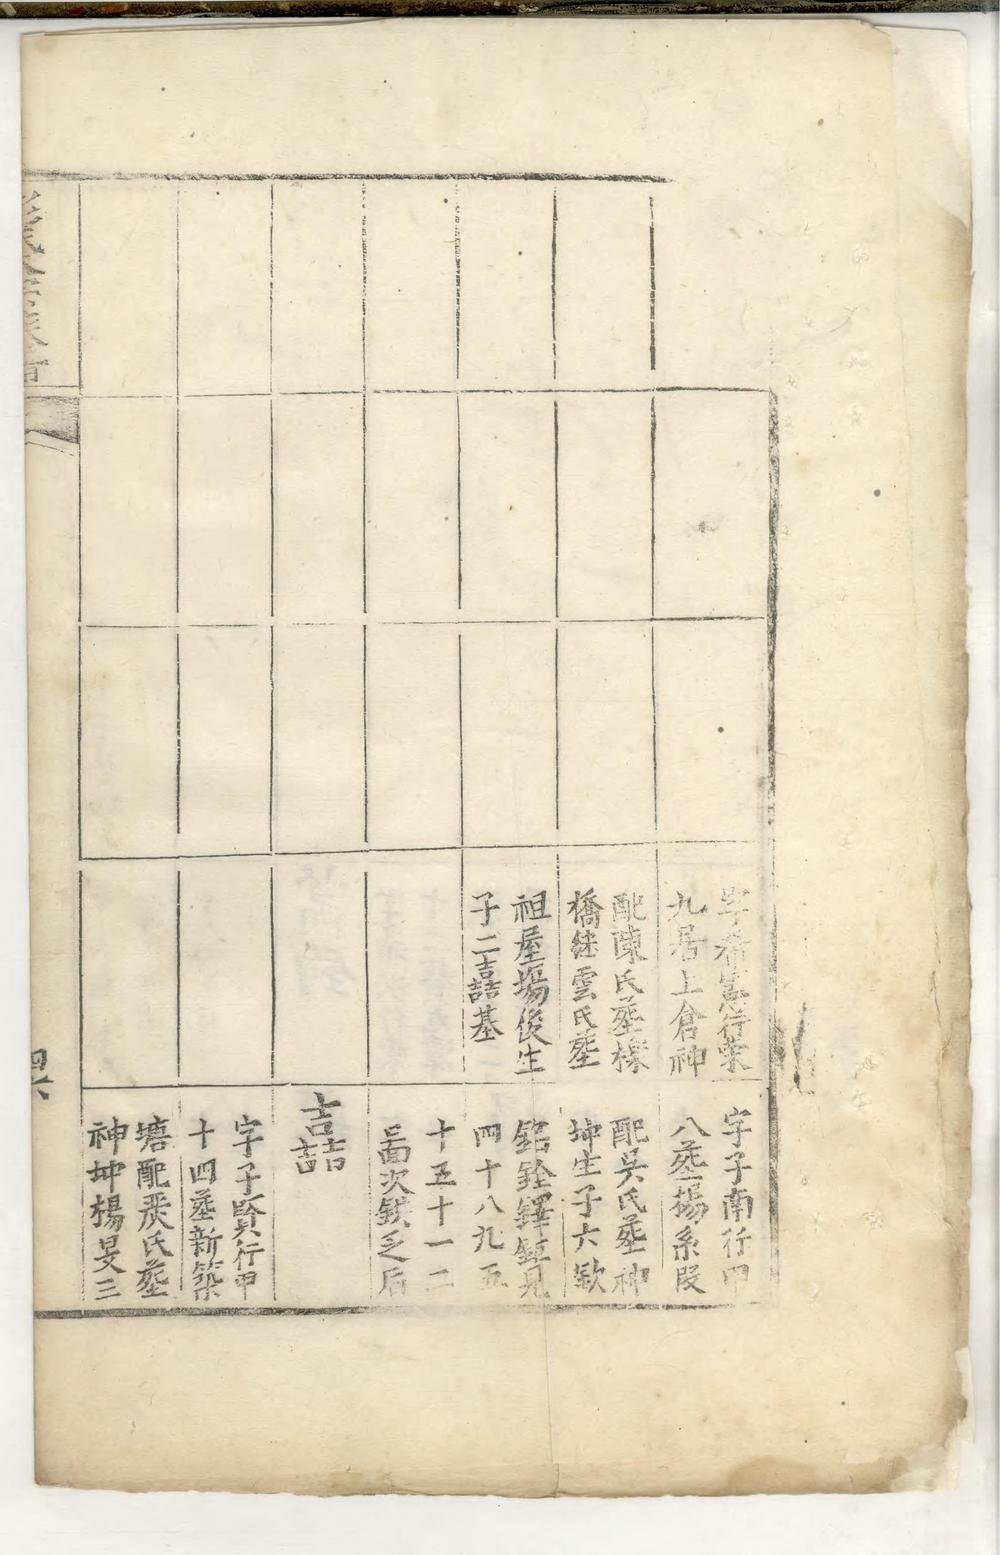 字希憲行榮
九居上倉神
配陳氏塟樣
橋継雲氏塟
祖屋塲後生
子二喆基
字子南行甲
八塟楊系段
配吴氏塟神
坤生子六欽
銘銓鐸鎮見
四十八九五
十五十一二
三面次鉄乏后
喆
字子賢行甲
十四塟新築
塘配嚴氏塟
神坤楊旻三
四六